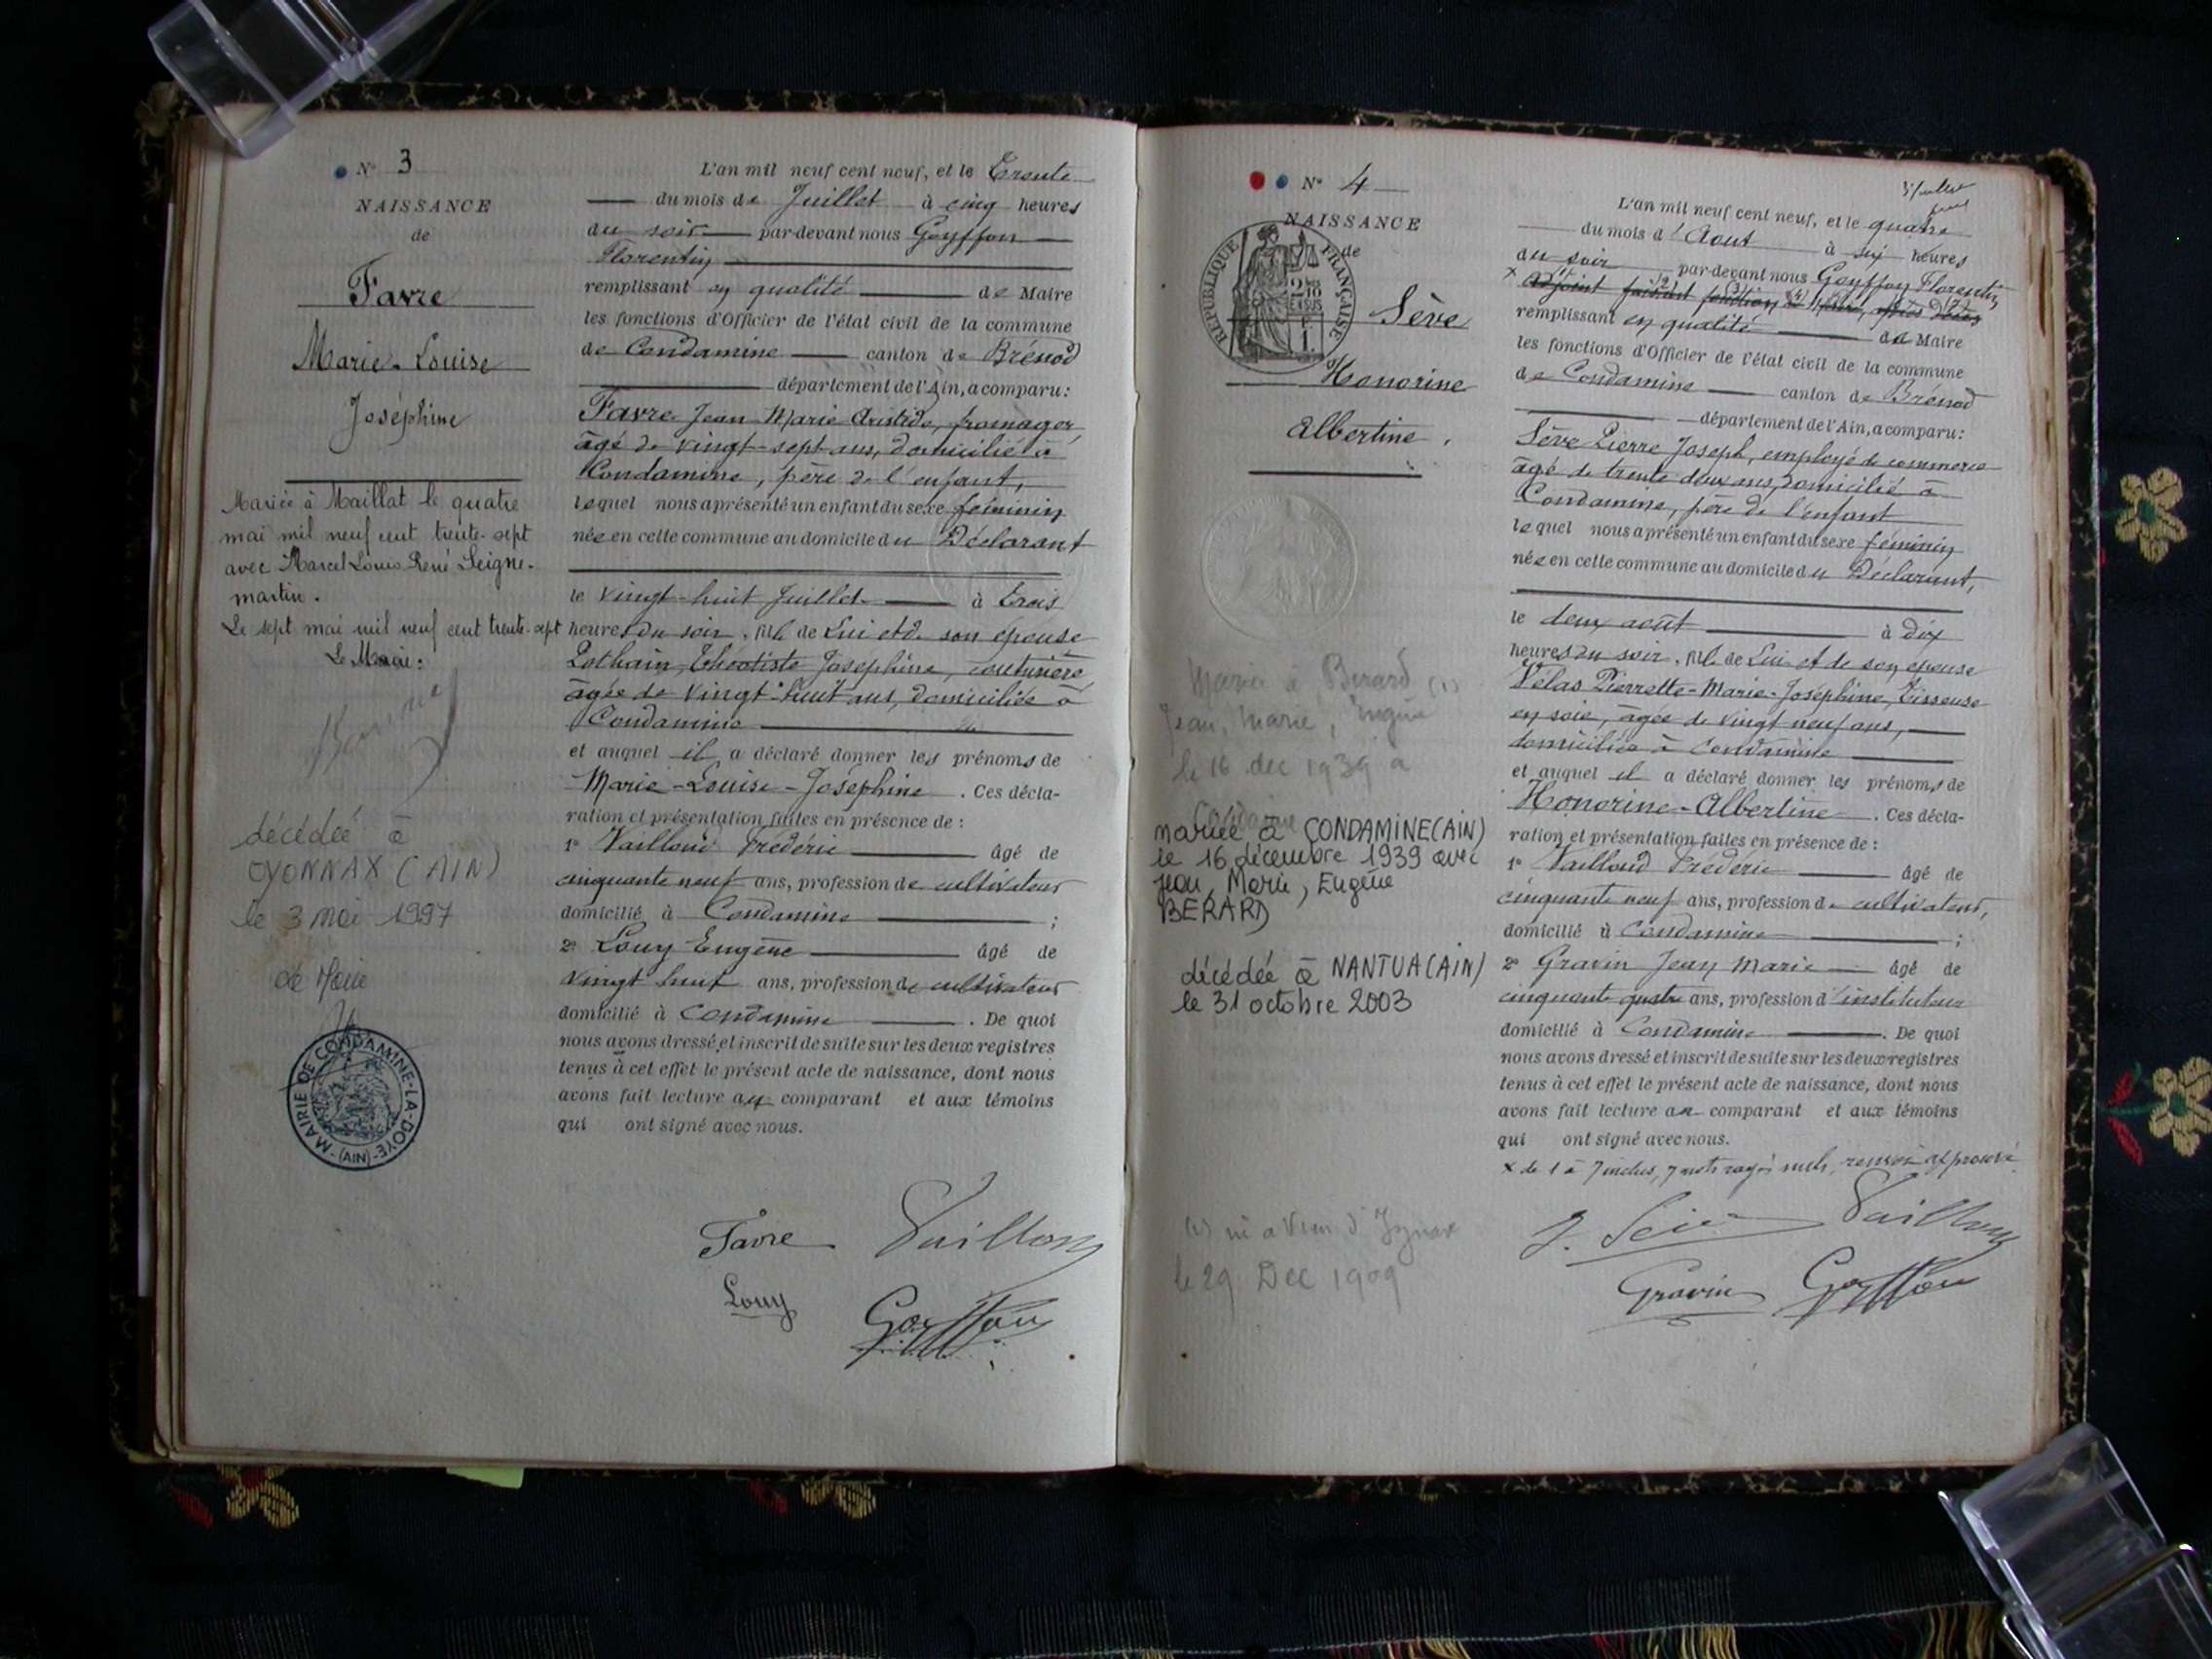 N° 3
NAISSANCE
de
Favre
Marie-Louise
Joséphine
Mariée à Maillat le quatre
mai mil neuf cent trente-sept
avec Marcel Louis René Seigne-
martin.
Le sept mai mil neuf cent trente-sept
Le Maire:
décédée à
OYONNAX (AIN)
le 3 mai 1997
MAIRIE DE CONDAMINE-LA-DOYE
(AIN)
L'an mil neuf cent neuf, et le Trente
du mois de Juillet à cinq heures
du soir par-devant nous Goyffon
Florentin
remplissant en qualité de Maire
les fonctions d'Officier de l'état civil de la commune
de Condamine canton de Brénod
département de l'Ain, a comparu:
Favre Jean Marie Aristide, fromager
âgé de vingt-sept ans, domicilié à
Condamine, père de l'enfant,
lequel nous a présenté un enfant du sexe féminin
née en cette commune au domicile du Déclarant
le vingt-huit Juillet à Trois
heures du soir, fille de Lui et de son épouse
Théotiste Joséphine, couturière
âgée de vingt-huit ans, domiciliée à
Condamine
et auquel il a déclaré donner les prénoms de
Marie-Louise-Joséphine. Ces décla-
ration et présentation faites en présence de:
1° Vailloud Frédéric âgé de
cinquante neuf ans, profession de cultivateur
domicilié à Condamine;
2° Louy Eugène âgé de
vingt huit ans, profession de cultivateur
domicilié à Condamine. De quoi
nous avons dressé et inscrit de suite sur les deux registres
tenus à cet effet le présent acte de naissance, dont nous
avons fait lecture au comparant et aux témoins
qui ont signé avec nous.
Favre Vailloud
Louy Goyffon
N° 4
NAISSANCE
de
RÉPUBLIQUE FRANÇAISE
Sève
Honorine
Albertine.
Mariée à Berard (1)
Jean, Marie, Eugène
le 16 dec 1939 à
Condamine
mariée à CONDAMINE (AIN)
le 16 décembre 1939 avec
Jean, Marie, Eugène
BERARD
décédée à NANTUA (AIN)
le 31 octobre 2003
(1) né a Vieu d'Izenave
le 29 Dec 1909
L'an mil neuf cent neuf, et le quatre
du mois d'Aout à six heures
du soir par-devant nous Goyffon Florentin
x adjoint faisant fonction
remplissant en qualité de Maire
les fonctions d'Officier de l'état civil de la commune
de Condamine canton de Brénod
département de l'Ain, a comparu:
Sève Pierre Joseph, employé de commerce
âgé de trente deux ans, domicilié à
Condamine, père de l'enfant
lequel nous a présenté un enfant du sexe féminin
née en cette commune au domicile du Déclarant,
le deux août à dix
heures du soir, fille de Lui et de son épouse
Velas Pierrette-Marie-Joséphine, Tisseuse
en soie, âgée de vingt neuf ans,
domiciliée à Condamine
et auquel il a déclaré donner les prénoms de
Honorine-Albertine. Ces décla-
ration et présentation faites en présence de:
1° Vailloud Frédéric âgé de
cinquante neuf ans, profession de cultivateur,
domicilié à Condamine;
2° Gravin Jean Marie âgé de
cinquante quatre ans, profession d'instituteur
domicilié à Condamine. De quoi
nous avons dressé et inscrit de suite sur les deux registres
tenus à cet effet le présent acte de naissance, dont nous
avons fait lecture au comparant et aux témoins
qui ont signé avec nous.
x de 1 à 7 inclus, 7 mots rayés nuls, renvoi approuvé
J. Sève Vailloud
Gravin Goyffon